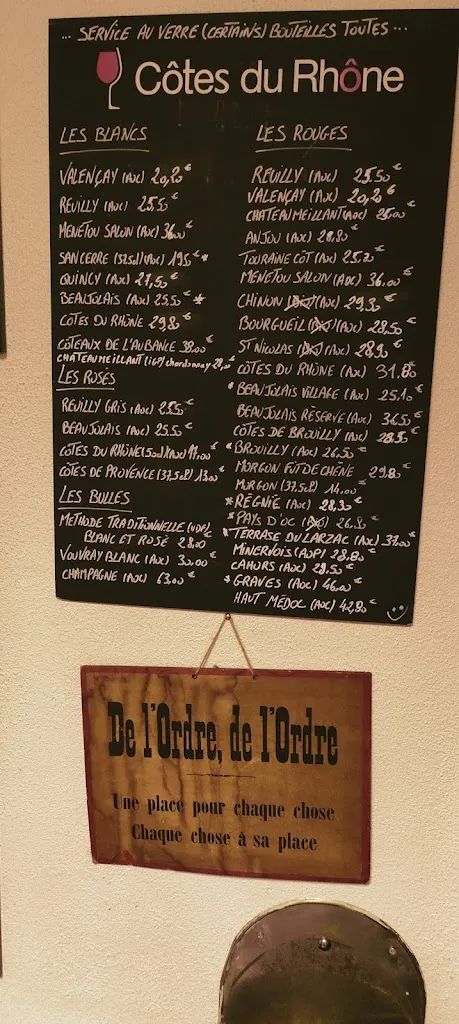 ... SERVICE AU VERRE (CERTAINS) BOUTEILLES TOUTES ...
Côtes du Rhône
LES BLANCS
VALENÇAY (AOC) 20,20€
REUILLY (AOC) 25,50€
MENETOU SALON (AOC) 36,00€
SANCERRE (37,5cl) (AOC) 19,5€ *
QUINCY (AOC) 27,50€
BEAUJOLAIS (AOC) 25,50€ *
CÔTES DU RHÔNE 29,80€
CÔTEAUX DE L'AUBANCE 38,00€
CHATEAUMEILLANT (IGP) chardonnay
LES ROSÉS
REUILLY GRIS (AOC) 25,50€
BEAUJOLAIS (AOC) 25.50€
CÔTES DU RHÔNE (50cl) (AOC) 19,00€
CÔTES DE PROVENCE (37,5cl) 13,00€
LES BULLES
METHODE TRADITIONNELLE (VDF)
BLANC ET ROSÉ 28,00€
VOUVRAY BLANC (AOC) 30,00€
CHAMPAGNE (AOC) 63,00€
LES ROUGES
REUILLY (AOC) 25.50€
VALENÇAY (AOC) 20,20€
CHATEAUMEILLANT (AOC) 25,00€
ANJOU (AOC) 28,80€
TOURAINE CÔT (AOC) 25,20€
MENETOU SALON (AOC) 36,00€
CHINON (AOC) 29,30€
BOURGUEIL (AOC) 28,50€
ST NICOLAS (AOC) 28,90€
CÔTES DU RHÔNE (AOC) 31.80€
* BEAUJOLAIS VILLAGE (AOC) 25,10€
BEAUJOLAIS RÉSERVE (AOC) 36,50€
CÔTES DE BROUILLY (AOC) 28,50€
* BROUILLY (AOC) 26,50€
MORGON FUT DE CHÊNE 29,80€
MORGON (37,5cl) 14,00€
* RÉGNIÉ (AOC) 28,30€
* PAYS D'OC 26,80€
* TERRASSE DU LARZAC (AOC) 37,00€
MINERVOIS (AOP) 28,80€
CAHORS (AOC) 29,50€
* GRAVES (AOC) 46,00€
HAUT MÉDOC (AOC) 42,80€
De l'Ordre, de l'Ordre
Une place pour chaque chose
Chaque chose à sa place